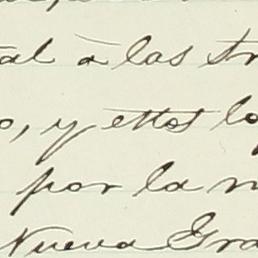 al à las tr
o, y ettos lo
por la n
Nueva Gra